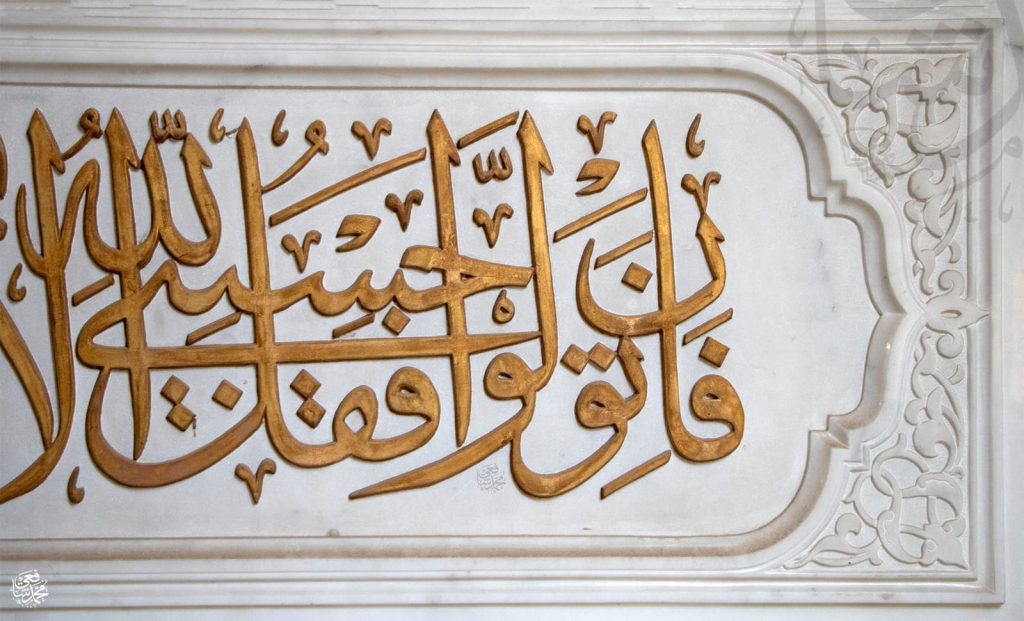 فَاِنْ تَوَلَّوْا فَقُلْ حَسْبِيَ اللّٰهُ لَا